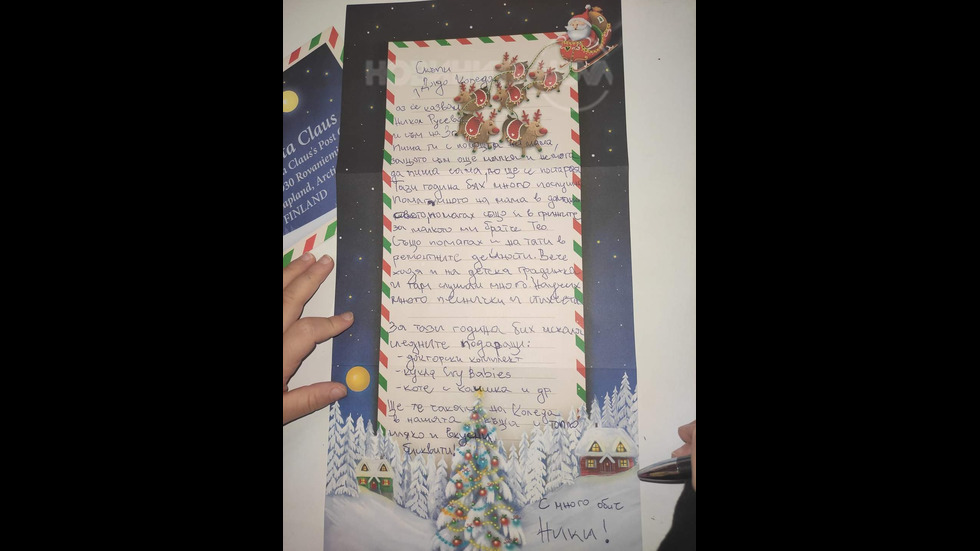 Santa Claus
Santa Claus's Post
Rovaniemi
Lapland, Arctic
FINLAND
Дядо Коледа
аз се казвам
Никол Русева
и съм на 3
Пиша ти с помощта на мама,
защото съм още малка и не мога
да пиша сама, но ще се постарая
Тази година бях много послушна
Помагах много на мама в
помагах също и в грижите
за малкото ми братче Тео
Също помагах и на тати в
ремонтните дейности. Вече
ходя и на детска градинка
и там слушам много. Научих
много песнички и стихчета
За тази година бих искала
следните подаръци:
- докторски комплект
- кукла Cry Babies
- коте с каишка и
Ще те чакаме на Коледа
в нашата къща и топло
мляко и вкусни
бисквити!
С много обич
Ники!